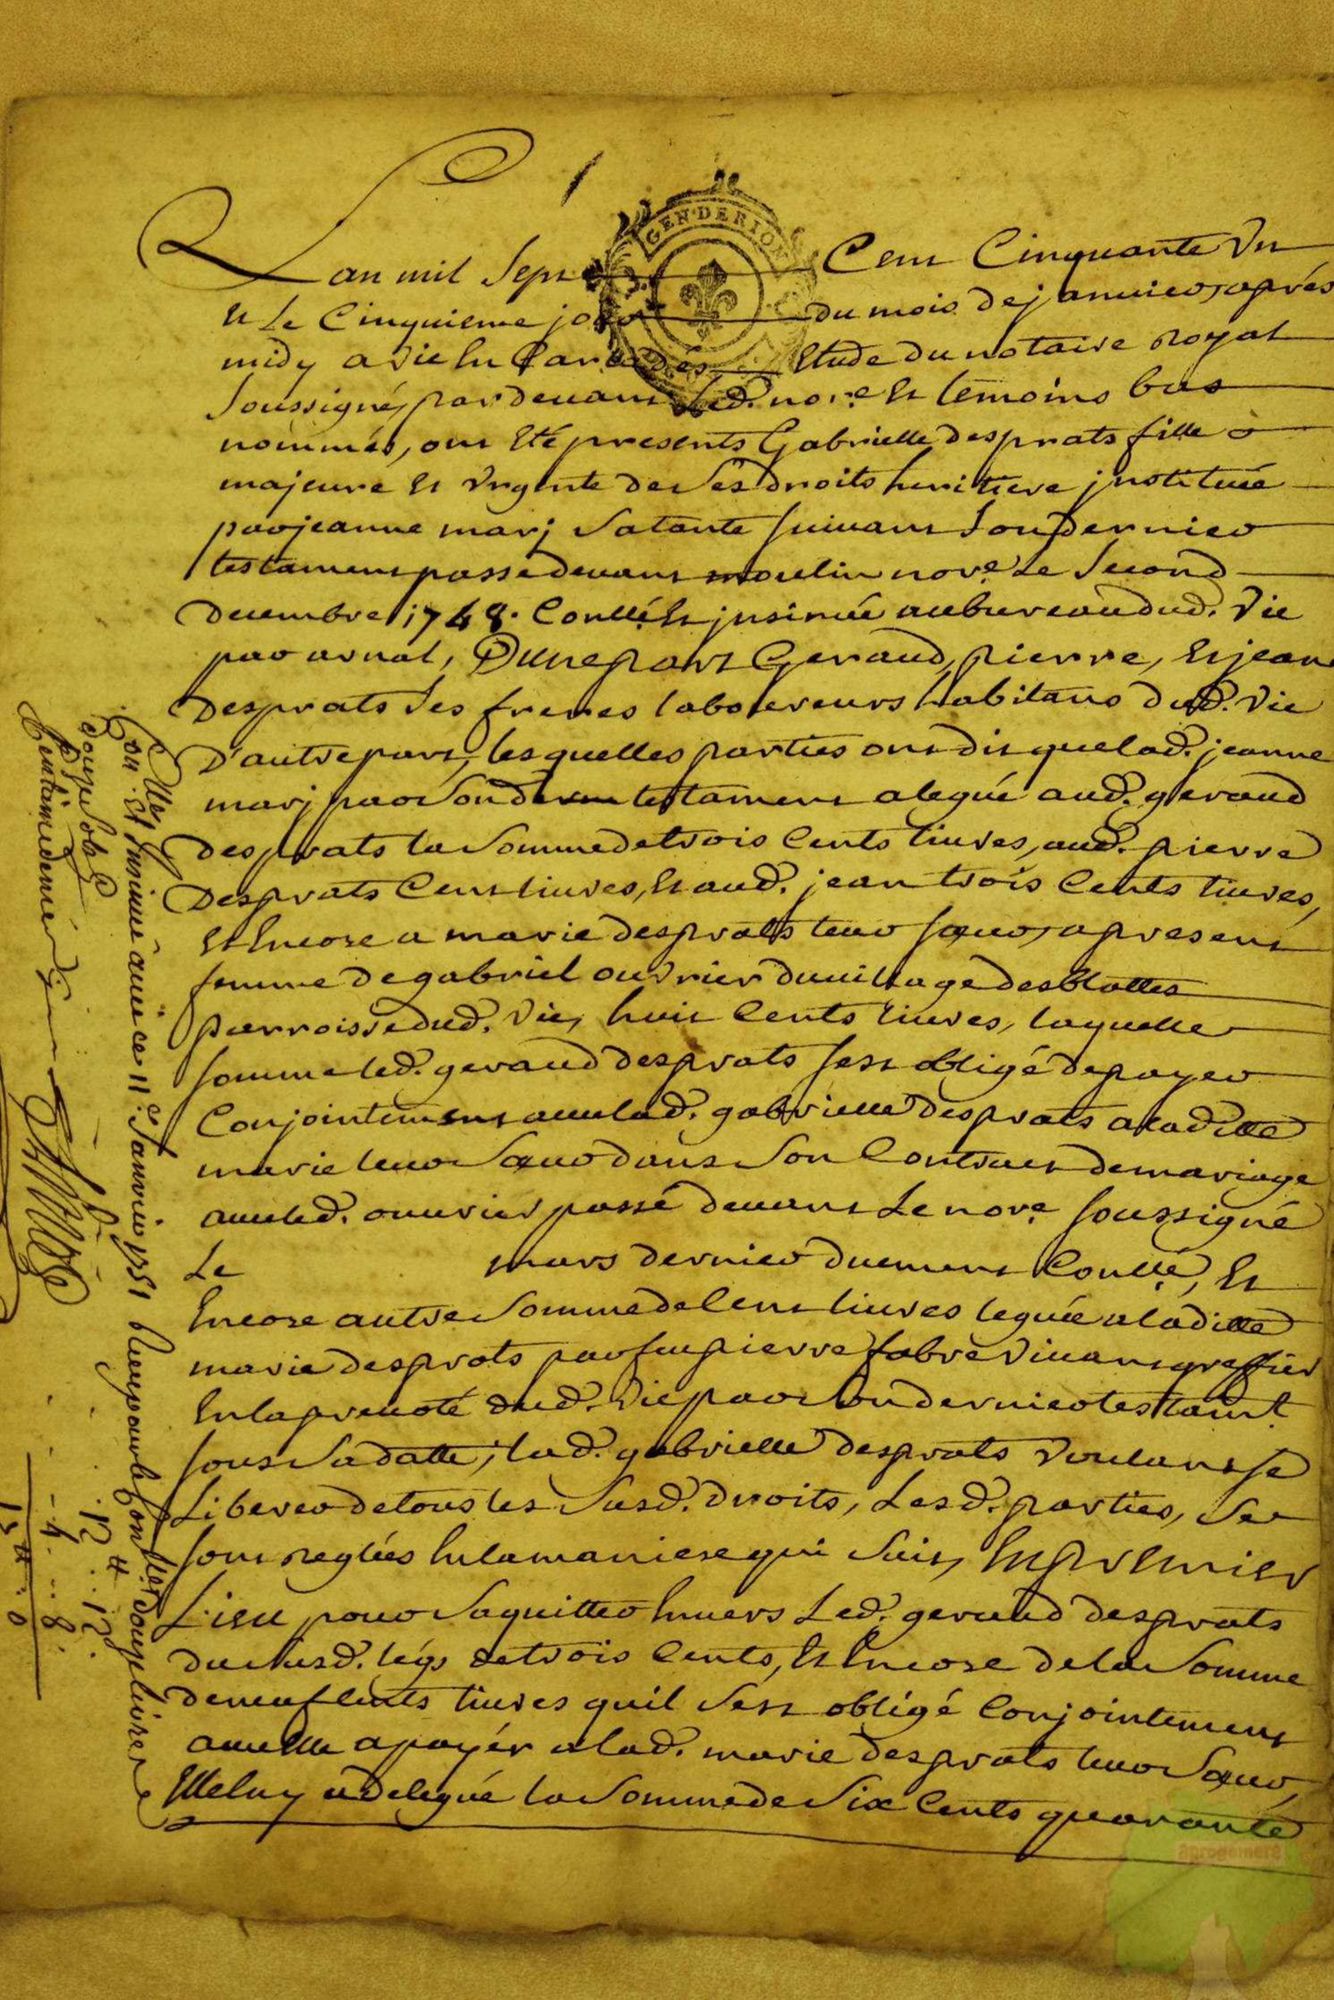 1
GENDERION
Lan mil sept Cent Cinquante Un
et le Cinquieme jour du mois de janvier, aprés
midy a Vic en Carladés, Etude du notaire royal
soussigné, pardevant led. no.re et temoins bas
nommés, ont été presents Gabrielle desprats fille
majeure et Usgente de ses droits heritiere jnstituée
par jeanne marj sa tante suivant son dernier
testament passé devant moulin no.re le second
decembre 1748. Conllé et jnsinué au bureau dud. Vic
par arnal, D'une part Geraud, pierre, et jean
desprats ses freres laboureurs habitans dud. Vic
D'autre part, les quelles parties ont dit que lad. jeanne
marj par son testament a legué aud. geraud
desprats la somme de trois cents livres, aud. pierre
desprats Cent livres, et aud. jean trois cents livres,
et Encore a marie desprats leur sœur, a present
femme de gabriel ouvrier du village desblattes
parroisse dud. Vic, huit cents livres, laquelle
somme led. geraud desprats sest obligé de payer
Conjointement avec lad. gabrielle desprats a laditte
marie leur sœur dans son Contract de mariage
avec led. ouvrier passé devant le no.re soussigné
Le mars dernier duement Conllé, et
Encore autre somme de Cent livres leguée a laditte
marie desprats par feu pierre fabre vivant greffier
En la prevoté dud. Vic par son dernier testam.t
sous sa datte, lad. gabrielle desprats voulant se
Liberer de tous les susd. droits, Lesd. parties, se
sont reglées En la maniere qui suit, En premier
Lieu pour saquitter Envers Led. geraud desprats
du susd. légs de trois Cents, et Encore de la somme
de neuf Cents livres quil sest obligé Conjointement
avec elle a payér a lad. marie desprats leur sœur,
Elle luy a delegué la somme de six Cents quarante
Con.llé Et Insinué a vic ce 11. Janvier 1751 Reçu pour le Con.lle douze livres
douze sols
Centiéme denier
12.tt 12.
4 .. 8.
1 tt 0